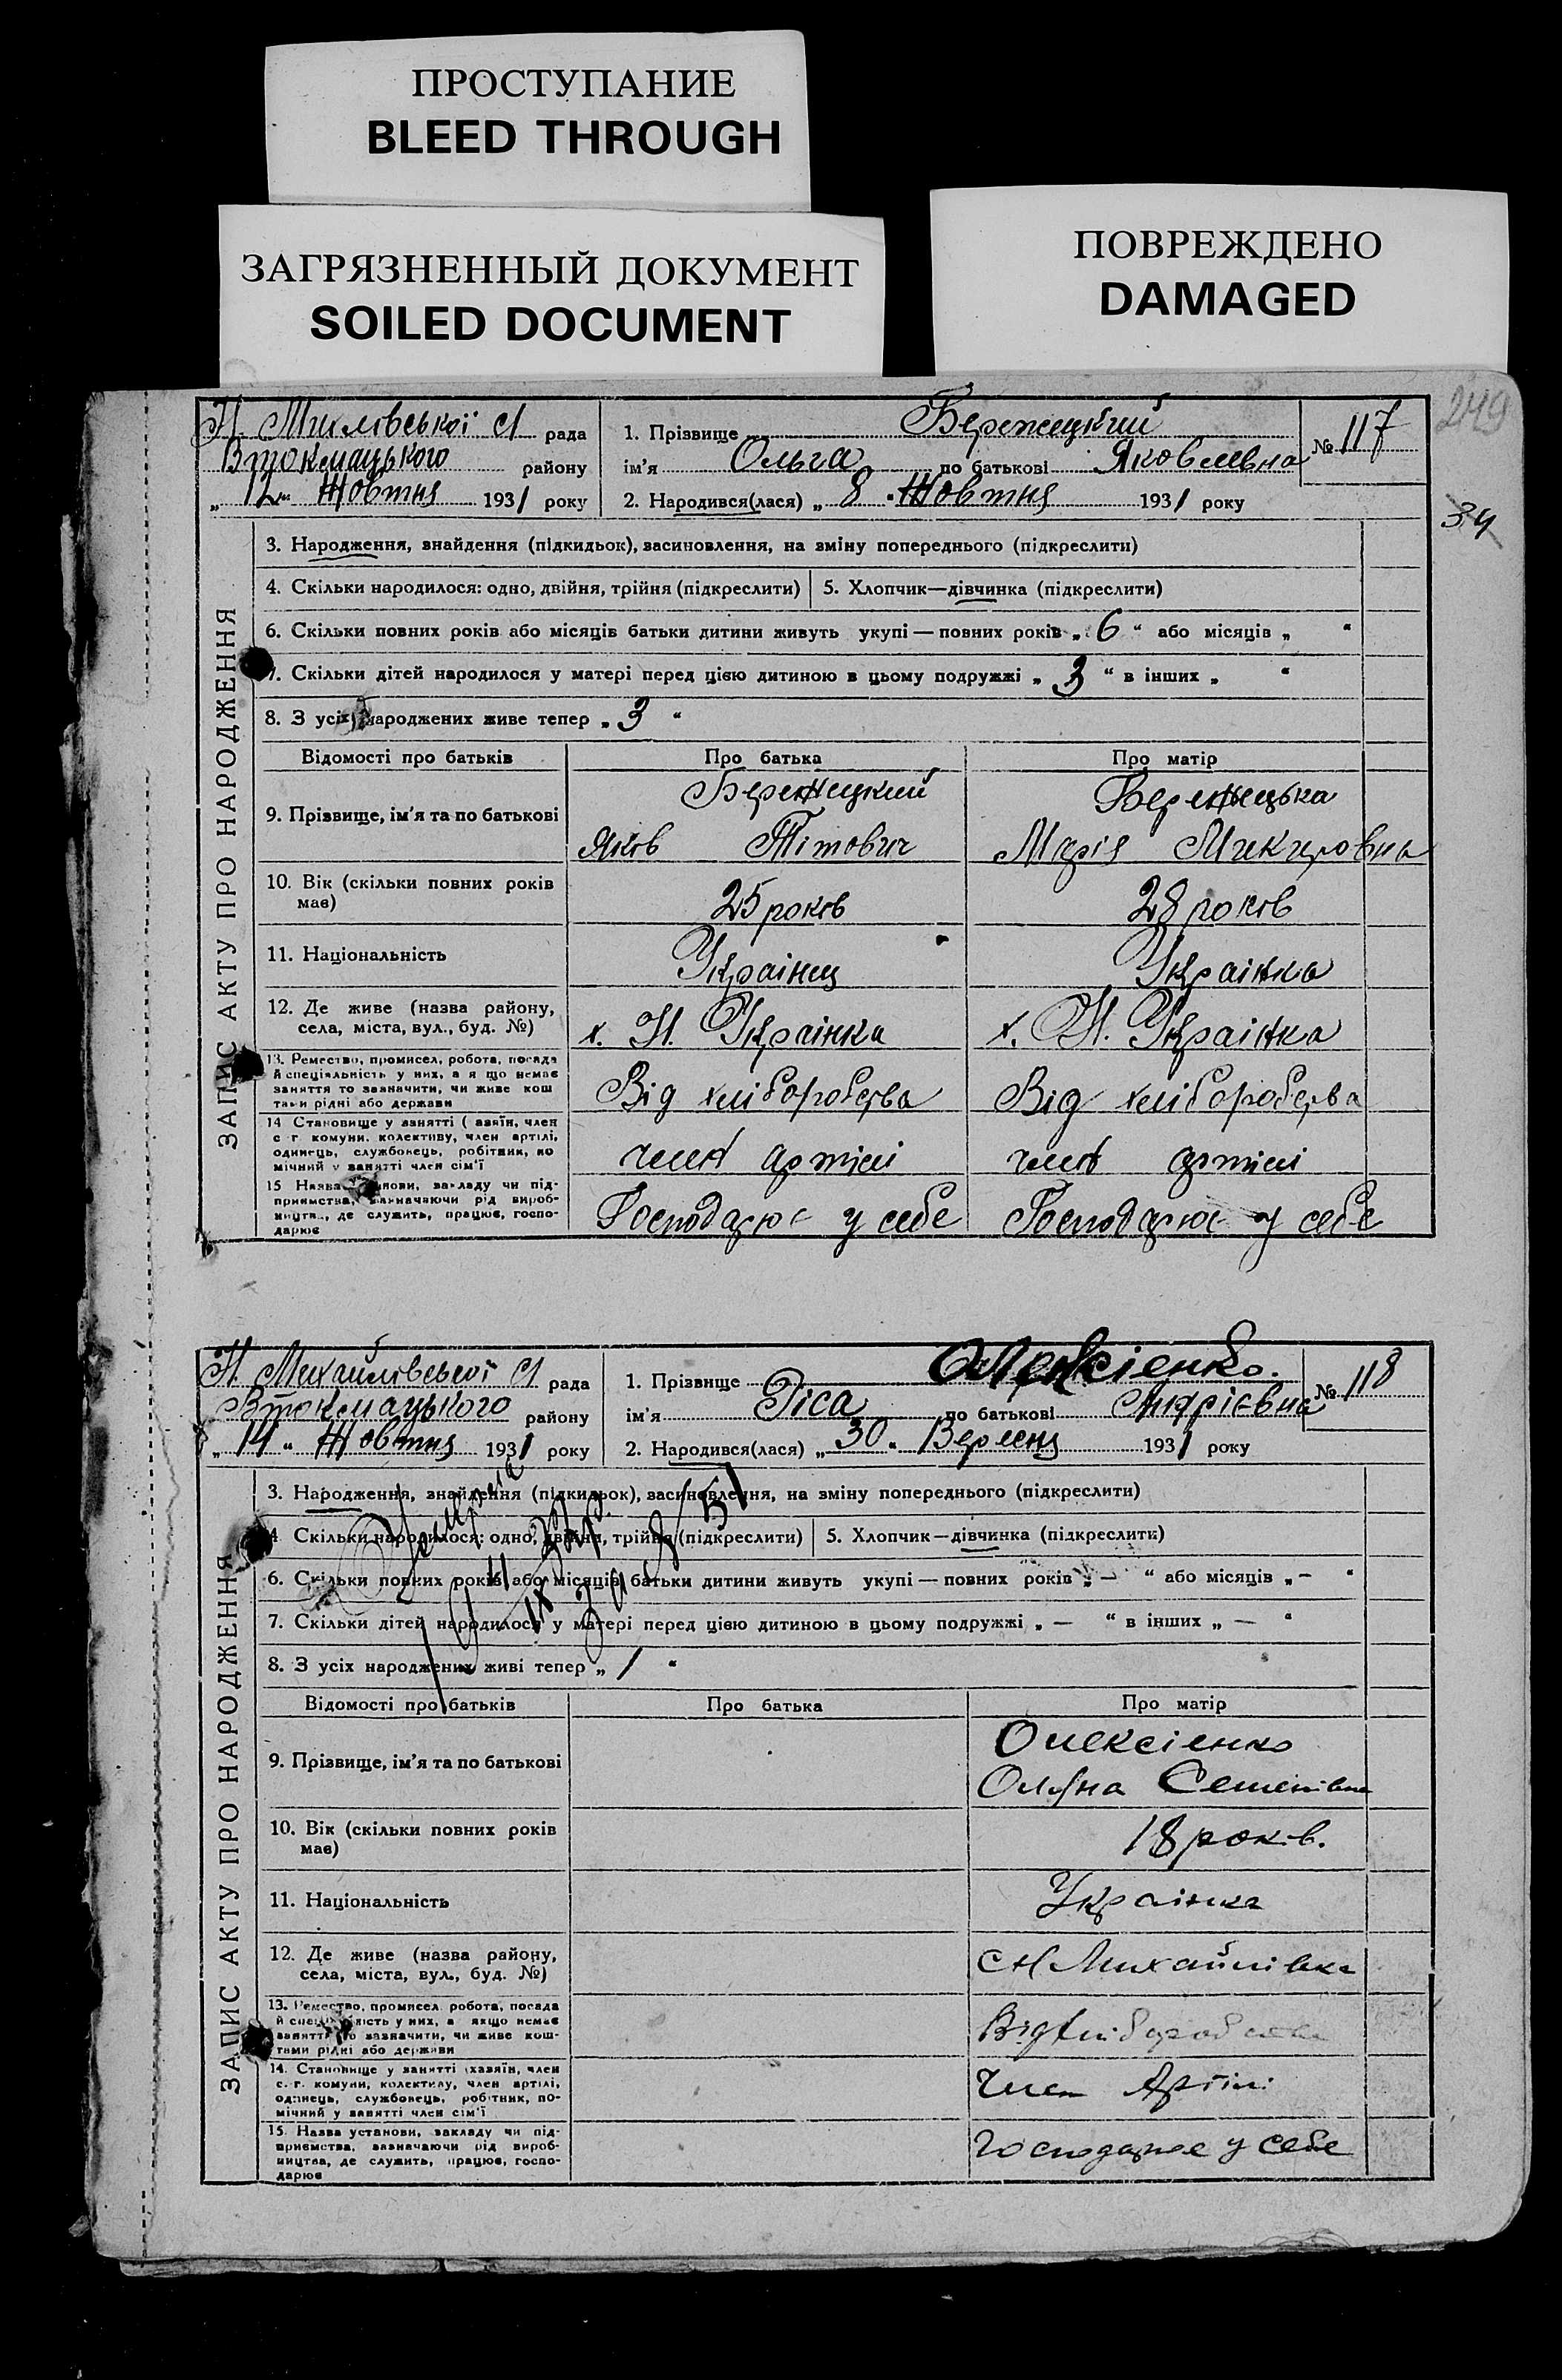 ПРОСТУПАНИЕ
BLEED THROUGH
ЗАГРЯЗНЕННЫЙ ДОКУМЕНТ
SOILED DOCUMENT
ПОВРЕЖДЕНО
DAMAGED
249
34
ЗАПИС АКТУ ПРО НАРОДЖЕННЯ
Н. рада
Втокмацького району
„ 12 " Жовтня 1931 року
1. Прізвище Бережецкий
№ 117
ім'я Ольга по батькові Яковлевна
2. Народився(лася) „ 8 " Жовтня 1931 року
3. Народження, знайдення (підкидьок), васиновлення, на вміну попереднього (підкреслити)
4. Скільки народилося: одно, двійня, трійня (підкреслити) 5. Хлопчик—дівчинка (підкреслити)
6. Скільки повних років або місяців батьки дитини живуть укупі — повних років „ 6 " або місяців „ "
7. Скільки дітей народилося у матері перед цією дитиною в цьому подружжі „ 3 " в інших „ "
8. З усіх народжених живе тепер „ 3 "
Відомості про батьків Про батька Про матір
9. Прізвище, ім'я та по батькові
Бережецкий Бережецька
Яков Тітович Марія
10. Вік (скільки повних років має)
25 років 28 років
11. Національність Украінец Украінка
12. Де живе (назва району, села, міста, вул., буд. №)
х. Н. Украінка х. Н. Украінка
13. Ремество, промисел, робота, посада
й спеціяльність у них, а я що немає
заняття то зазначити, чи живе кош
тами рідні або держави
Від хліборобства Від хліборобства
14 Становище у занятті ( авяїн, член
с г. комуни, колективу, член артілі,
одинець, службовець, робітник, по
мічний у занятті член сім'ї
член артілі член артілі
15 Назва установи, закладу чи під-
приємства, зазначаючи рід вироб-
ництва, де служить, працює, госпо-
дарює
Господарює у себе Господарює у себе
ЗАПИС АКТУ ПРО НАРОДЖЕННЯ
Н Михайлівської С рада
Втокмацького району
„ 14 " Жовтня 1931 року
1. Прізвище Олексієнко.
№ 118
ім'я Ріса по батькові Андрієвна
2. Народився(лася) „ 30 " Вересня 1931 року
3. Народження, знайдення (підкидьок), васиновлення, на вміну попереднього (підкреслити)
4 Скільки народилося: одно, двійня, трійня (підкреслити) 5. Хлопчик—дівчинка (підкреслити)
6. Скільки повних років або місяців батьки дитини живуть укупі — повних років „ — " або місяців „ — "
7. Скільки дітей народилося у матері перед цією дитиною в цьому подружжі „ — " в інших „ — "
8. З усіх народжених живі тепер „ 1 "
Відомості про батьків Про батька Про матір
9. Прізвище, ім'я та по батькові
Олексіенко
Семенівна
10. Вік (скільки повних років має)
18 років.
11. Національність Украінка
12. Де живе (назва району, села, міста, вул., буд. №)
с Н Михайлівка
13. Ремество, промисел робота, посада
й спеціяльність у них, а якщо немає
заняття то зазначити, чи живе кош-
тами рідні або держави
Від хліборобства
14. Становище у занятті (хазяїн, член
с. г. комуни, колективу, член артілі,
одинець, службовець, робітник, по-
мічний у занятті член сім'ї
Член Артілі
15. Назва установи, закладу чи під-
приємства, зазначаючи рід вироб-
ництва, де служить, працює, госпо-
дарює
Господарює у себе